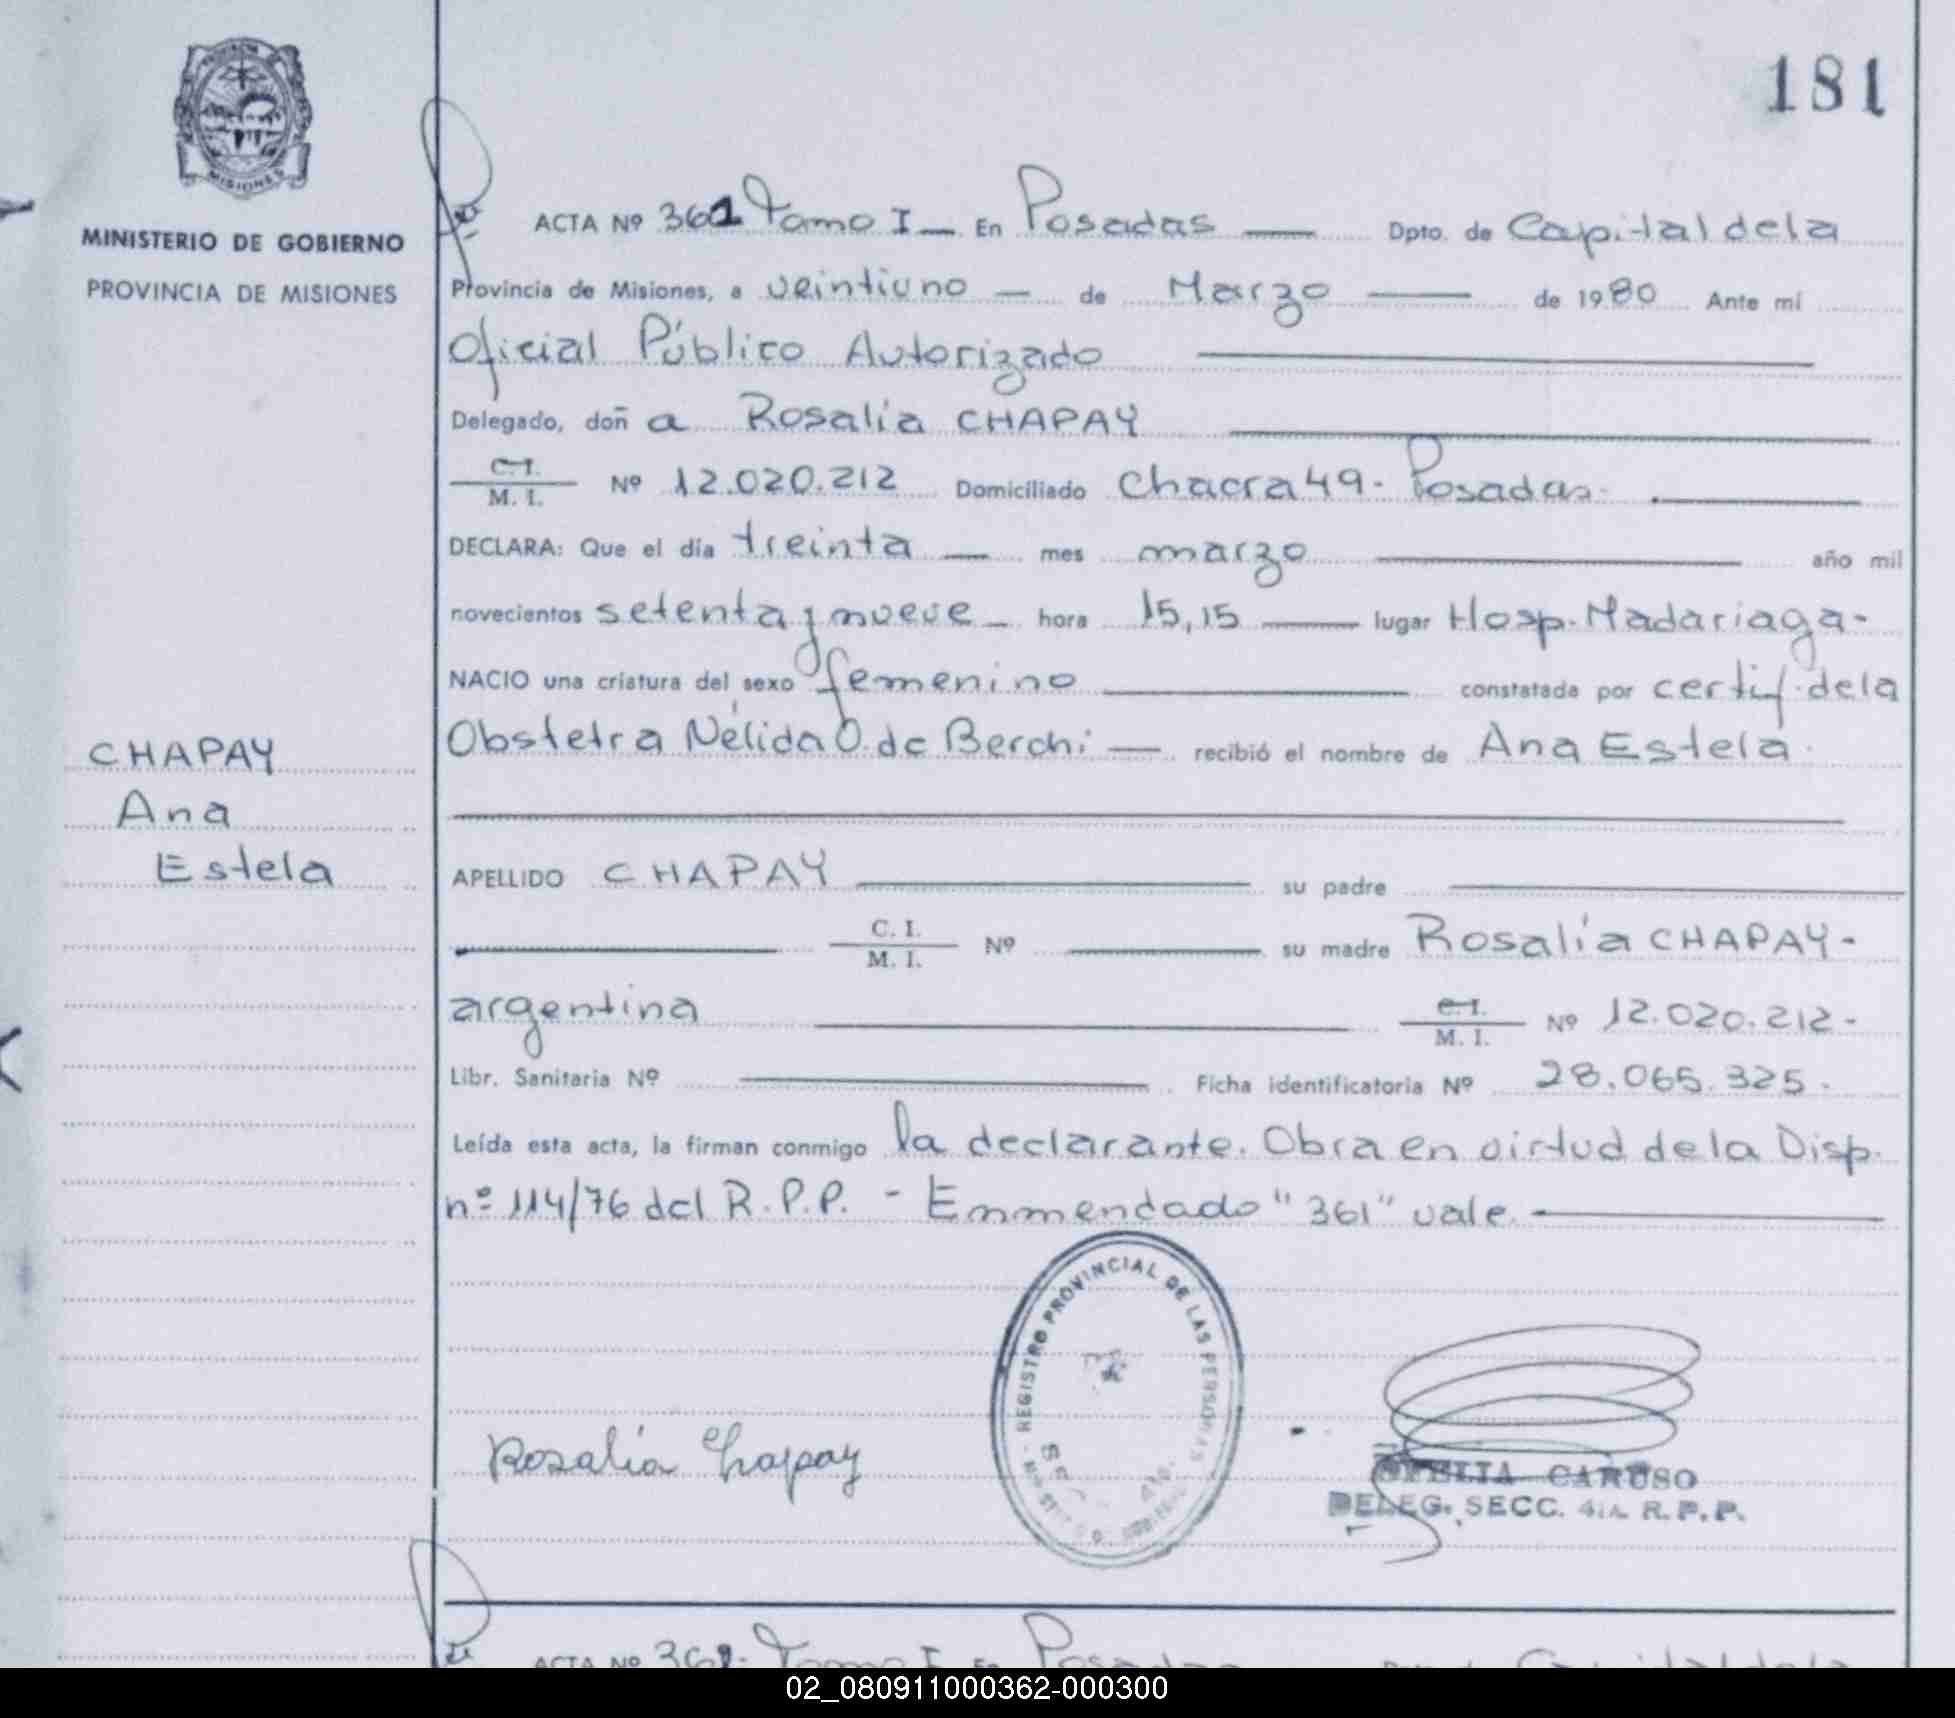 PROVINCIA
MISIONES
MINISTERIO DE GOBIERNO
PROVINCIA DE MISIONES
181
ACTA Nº 361 Tomo I — En Posadas — Dpto. de Capital de la
Provincia de Misiones, a veintiuno — de Marzo — de 1980 Ante mí
Oficial Público Autorizado
Delegado, doñ a Rosalía CHAPAY
C. I.
M. I. Nº 12.020.212 Domiciliado Chacra 49. Posadas.
DECLARA: Que el día treinta — mes marzo — año mil
novecientos setenta y nueve — hora 15,15 — lugar Hosp. Madariaga-
NACIO una criatura del sexo femenino — constatada por certif. de la
Obstetra Nélida O. de Berchi — recibió el nombre de Ana Estela.
CHAPAY
Ana
Estela
APELLIDO CHAPAY — su padre —
— C. I.
M. I. Nº — su madre Rosalía CHAPAY-
argentina — C. I.
M. I. Nº 12.020.212-
Libr. Sanitaria Nº — Ficha identificatoria Nº 28.065.325.
Leída esta acta, la firman conmigo la declarante. Obra en virtud de la Disp.
nº 114/76 del R.P.P. - Enmendado "361" vale. —
REGISTRO PROVINCIAL DE LAS PERSONAS
Rosalía Chapay
OFELIA CARUSO
DELEG. SECC. 4ta. R. P. P.
ACTA Nº 362 Tomo I En Posadas Capital de la
02_080911000362-000300